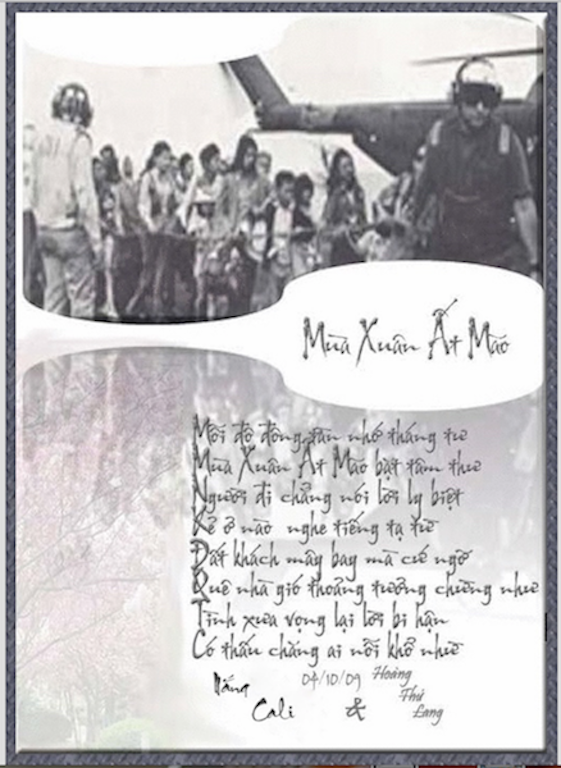 Mùa Xuân Ất Mão
Mỗi độ đông tàn nhớ tháng tư
Mùa Xuân Ất Mão bặt tâm thư
Người đi chẳng nói lời ly biệt
Kẻ ở nào nghe tiếng tạ từ
Đất khách mây bay mà cứ ngỡ
Quê nhà gió thoảng tưởng chừng như
Tình xưa vọng lại lời bi hận
Có thấu chăng ai nỗi khổ nhừ
Nắng 04/10/09 Hoàng
Cali & Thư
Lang